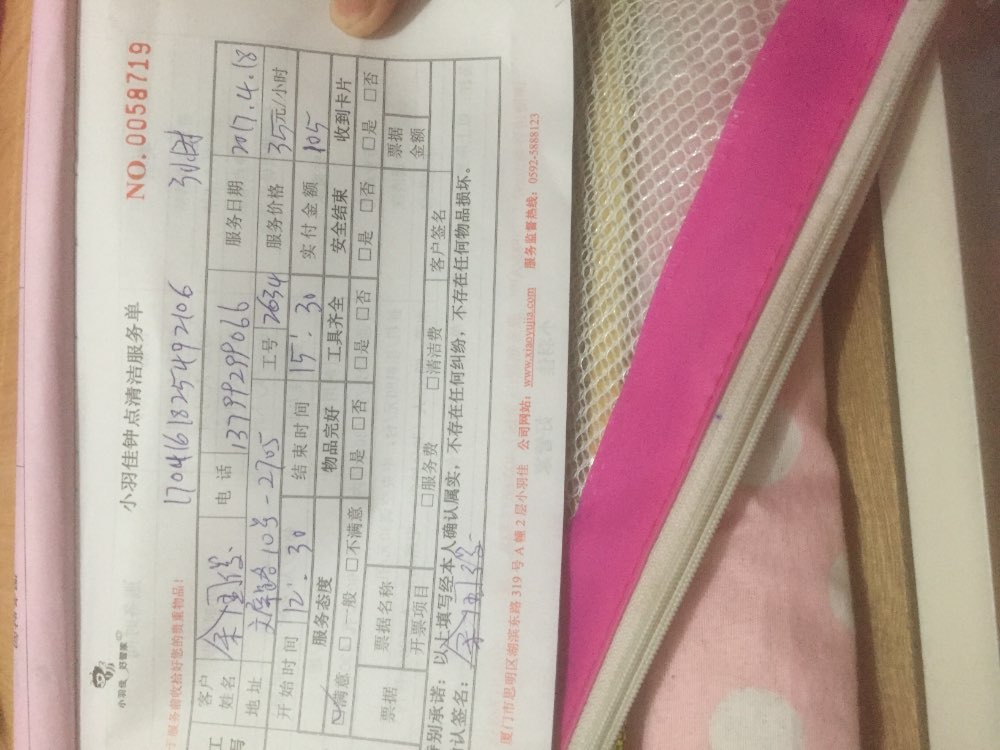 小羽佳 好管家
小羽佳钟点清洁服务单
NO. 0058719
服务前收拾好您的贵重物品!
1704161825492106
客户姓名 电话 13799299066 服务日期 2017.4.18
地址 10号-2705 工号 2634 服务价格 35元/小时
开始时间 12:30 结束时间 15:30 实付金额 105
服务态度 物品完好 工具齐全 安全结束 收到卡片
满意 □一般 □不满意 □是 □否 □是 □否 □是 □否 □是 □否
票据 票据名称 票据金额
开票项目 □服务费 □清洁费 客户签名
别承诺:以上填写经本人确认属实,不存在任何纠纷,不存在任何物品损坏。
认签名:
厦门市思明区湖滨东路 319 号 A 幢 2 层小羽佳 公司网站:www.xiaoyujia.com 服务监督热线:0592-5888123